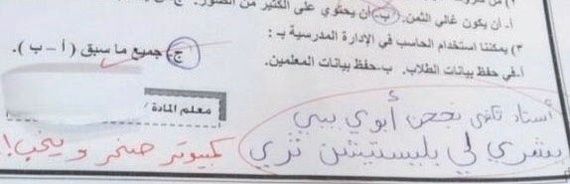 أ. أن يكون غالي الثمن. ب- أن يحتوي على الكثير من الصور.
٣) يمكننا استخدام الحاسب في الإدارة المدرسية بـ :
أ.في حفظ بيانات الطلاب. ب-حفظ بيانات المعلمين. ج- جميع ما سبق ( أ – ب ).
معلم المادة /
أستاد تكفى نجحن أبوي بيبي
يشري لي بليستيشن ثري
كمبيوتر صخر ويخب!